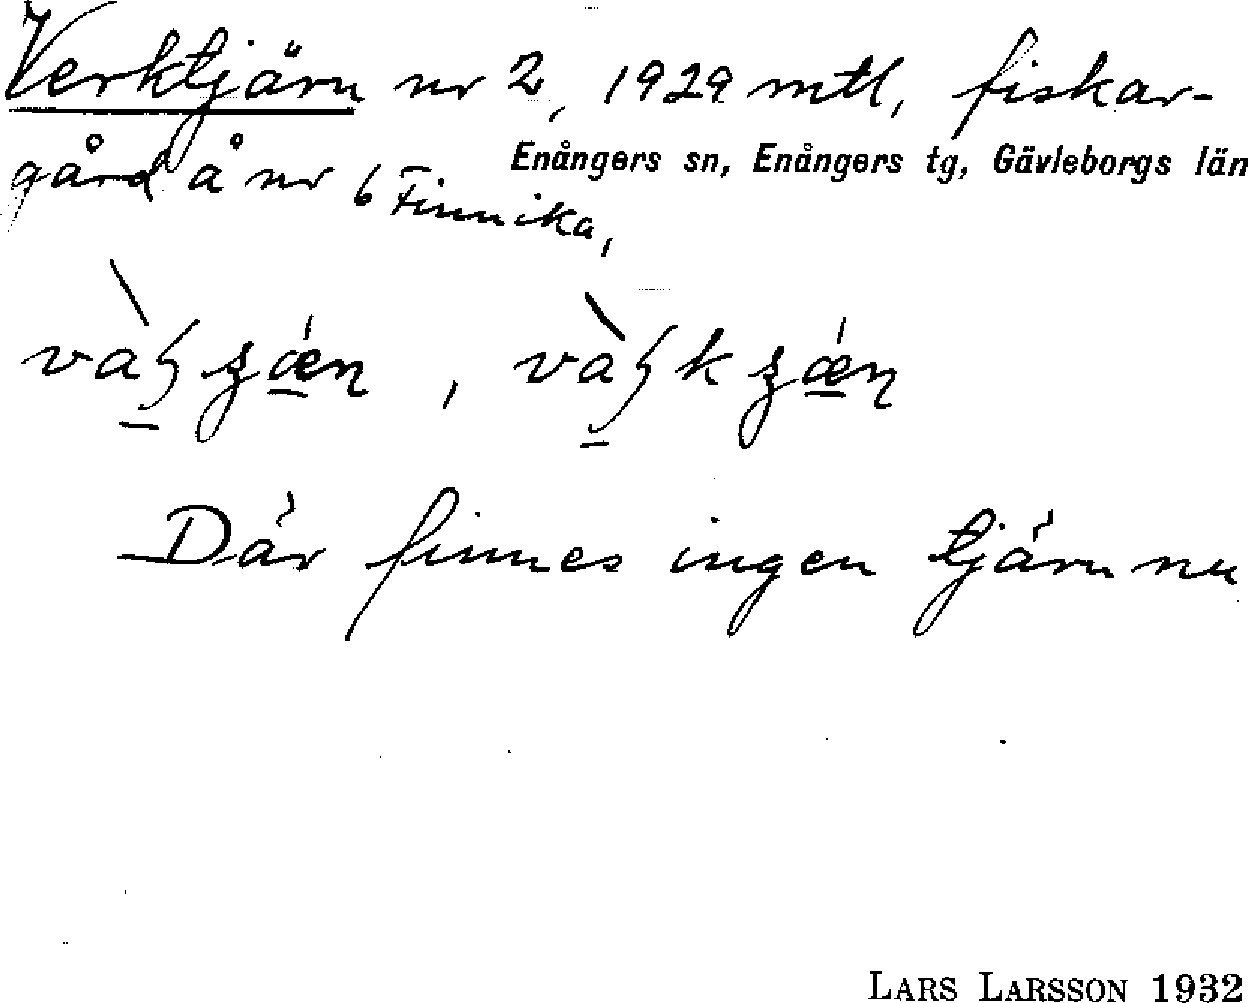 Verktjärn nr 2, 1929 mtl, fiskar-
gård å nr 6 Finnika,
Enångers sn, Enångers tg, Gävleborgs län
Där finnes ingen tjärn nu
LARS LARSSON 1932